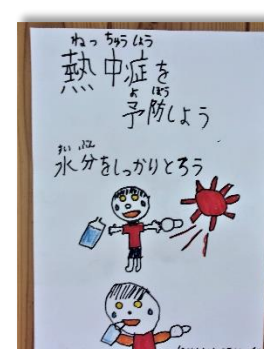 ねっちゅうしょう
熱中症を
よぼう
予防しよう
すいぶん
水分をしっかりとろう